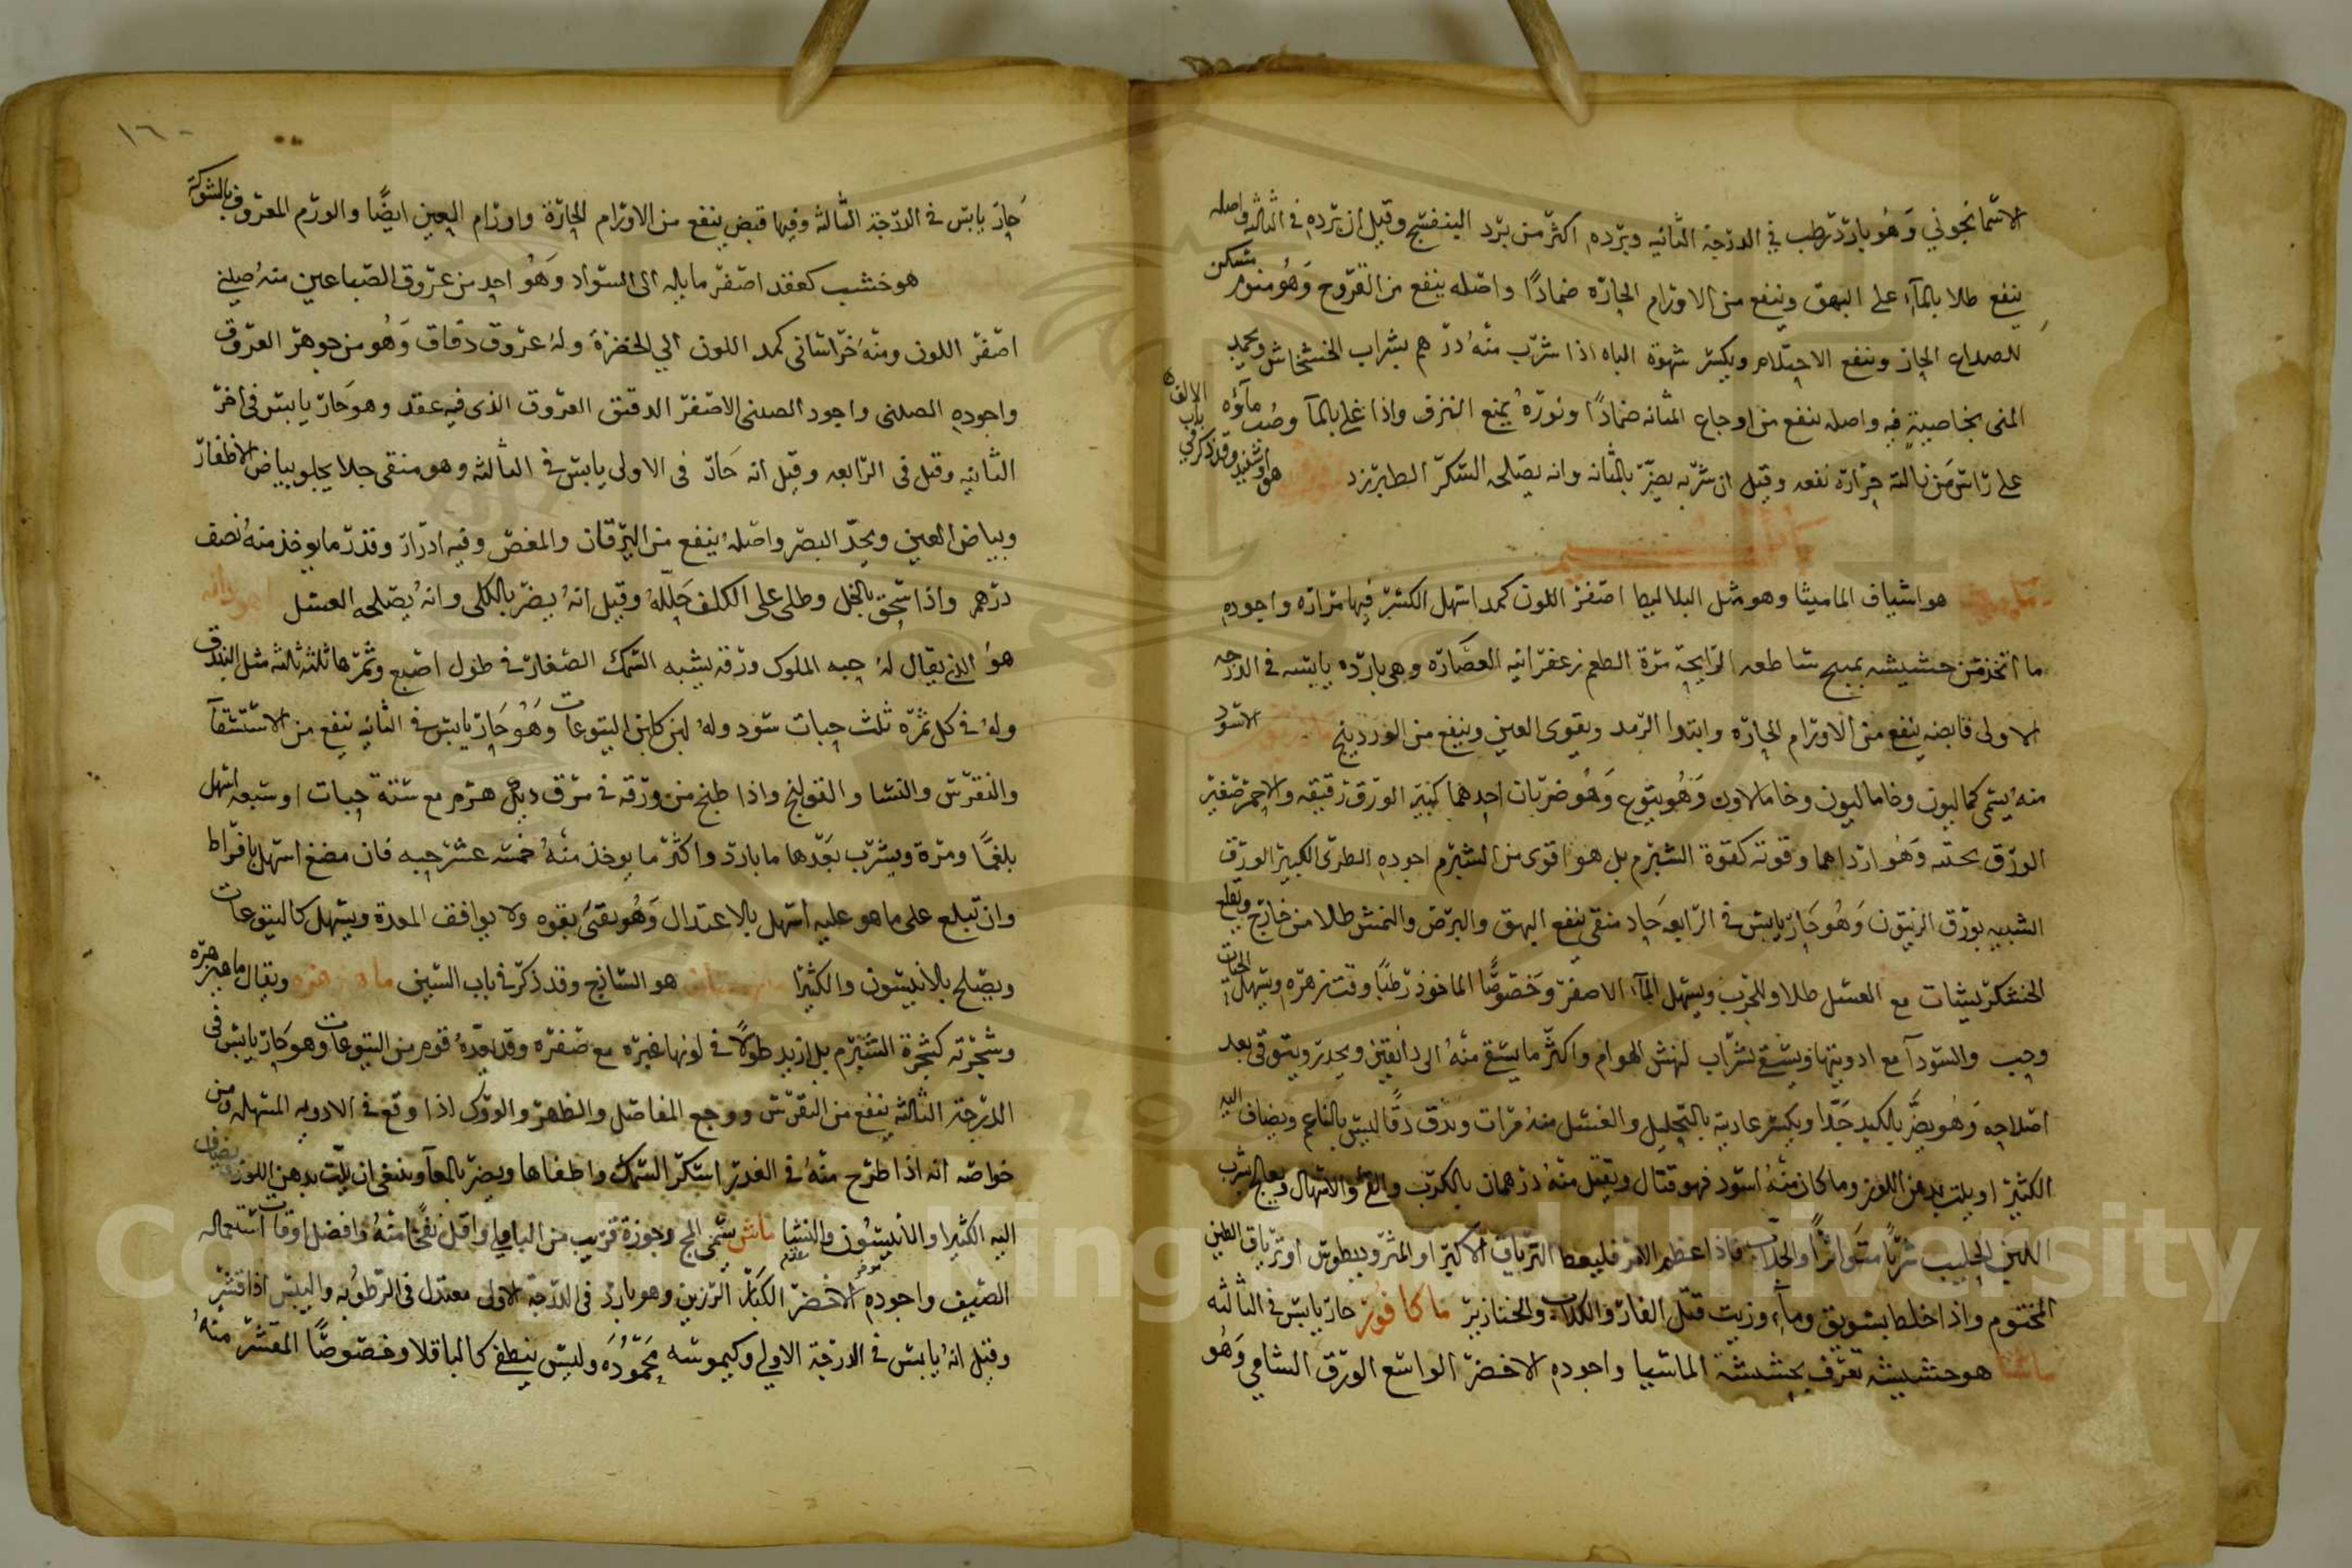 الاسمانجوني وهو بارد رطب في الدرجة الثانيه وبرده اكثر من برد البنفسج وقيل ان برده في الثالثه واصله
ينفع طلا بالماء على البهق وينفع من الاورام الحاره ضمادا واصله ينفع من القروح وهو منوم مسكن
للصداع الحار وينفع الاحتلام ويكسر شهوة الباه اذا شرب منه درهم بشراب الخشخاش ويجمد
المنى بخاصية فيه واصله ينفع من اوجاع المثانه ضمادا وبزره يمنع النزف واذا غلي بالماء وصب ماؤه
على راس من نالته حرارة نفعه وقيل ان شربه يضر بالمثانه وانه يصلحه السكر الطبرزد هو وقد ذكر في باب الالف
هو اشياف الماميثا وهو مثل البلاليط اصفر اللون كمد اسهل الكسر فيها مرارة واجوده
ما اتخذ من حشيشه ساطعه الرايحة مرة الطعم زعفرانيه العصاره وهي بارده يابسه في الدرجه
الاولى قابضه ينفع من الاورام الحاره وابتدا الرمد ويقوى العين وينفع من الوردينج الاسود
منه يسمى كماليون وخاماليون وخامالاون وهو يتوع وهو ضربان احدهما كبير الورق رقيقه والاخر صغير
الورق نحيفه وهو ارداهما وقوته كقوة الشبرم بل هو اقوى من الشبرم اجوده الطرى الكبير الورق
الشبيه بورق الزيتون وهو حار يابس في الرابعه حاد منقى ينفع البهق والبرص والنمش طلا من خارج ويقلع
الخشكريشات مع العسل طلا والجرب ويسهل الماء الاصفر وخصوصا الماخوذ رطبا وقت زهره ويسهل الحيات
وحب والسودآ مع ادويتها ويسقى بشراب لنهش الهوام واكثر ما يسقى منه الى دانقين ويحذر ويتوقى بعد
اصلاحه وهو يضر بالكبد جدا ويكسر عاديته بالتحليل والغسل منه مرات ويدق دقا ليس بالناعم ويضاف اليه
الكثيرا ويلت بدهن اللوز وما كان منه اسود فهو قتال ويقتل منه درهمان بالكرب والقئ والاسهال ويعالج بشرب
اللبن الحليب شربا متواترا والجلاب فاذا عظم الامر فليعط الترياق الاكبر او المثروديطوس او ترياق الطين
المختوم واذا خلط بسويق وماء وزيت قتل الفار والكلاب والخنازير ماكافور حار يابس في الثالثه
ماشا هو حشيشه تعرف بحشيشة الماميثا واجوده الاخضر الواسع الورق الشامي وهو
١٦٠
حار يابس في الدرجة الثالثه وفيها قبض ينفع من الاورام الحارة واورام العين ايضا والورم المعروف بالشوكة
هو خشب كعقد اصفر مايله الى السواد وهو احد من عروق الصباغين منه صيني
اصفر اللون ومنه خراساني كمد اللون الي الخضرة وله عروق دقاق وهو من جوهر العروق
واجوده الصينى واجود الصينى الاصفر الدقيق العروق الذى فيه عقد وهو حار يابس في اخر
الثانيه وقيل في الرابعه وقيل انه حار في الاولى يابس في الثالثه وهو منقى جلا يجلو بياض الاظفار
وبياض العين ويحد البصر واصله ينفع من اليرقان والمغص وفيه ادرار وقدر ما يوخذ منه نصف
درهم واذا سحق بالخل وطلى على الكلف حلله وقيل انه يضر بالكلى وانه يصلحه العسل ماهودانه
هو الذي يقال له حب الملوك ورقه يشبه السمك الصغار في طول اصبع وثمرها ثلثه ثلثه مثل البندق
وله في كل ثمره ثلث حبات سود وله لبن كلبن اليتوعات وهو حار يابس في الثانيه ينفع من الاستسقآ
والنقرس والنسا والقولنج واذا طبخ من ورقه في مرق ديك هرم مع ستة حبات او سبعه اسهل
بلغما ومرة ويشرب بعدها ما بارد واكثر ما يوخذ منه خمسه عشر حبه فان مضغ اسهل بافراط
وان تبلع على ما هو عليه اسهل بالاعتدال وهو يقئ بقوه ولا يوافق المعدة ويسهل كاليتوعات
ويصلح بالانيسون والكثيرا هو الساذج وقد ذكر في باب السين ماهى زهره ويقال ماهيزهره
وشجرته كشجرة الشبرم بل ازيد طولا في لونها غبره مع صفره وقد يعده قوم من اليتوعات وهو حار يابس في
الدرجة الثالثه ينفع من النقرس ووجع المفاصل والظهر والورك اذا وقع في الادويه المسهله ومن
خواصه انه اذا طرح منه في الغدير اسكر السمك واطفاها ويضر بالمعآ وينبغى ان يلت بدهن اللوز ويضاف
اليه الكثيرا والانيسون والنشا ماش يسمى المج وجوزة قريب من الباقلي واقل نفخا منه وافضل اوقات استعماله
الصيف واجوده الاخضر الكبار الرزين وهو بارد في الدرجة الاولى معتدل في الرطوبه واليبس اذا قشر
وقيل انه يابس في الدرجة الاولي وكيموسه محموده وليس ينطفي كالباقلا وخصوصا المقشر منه
Copyright © King Saud University
1957